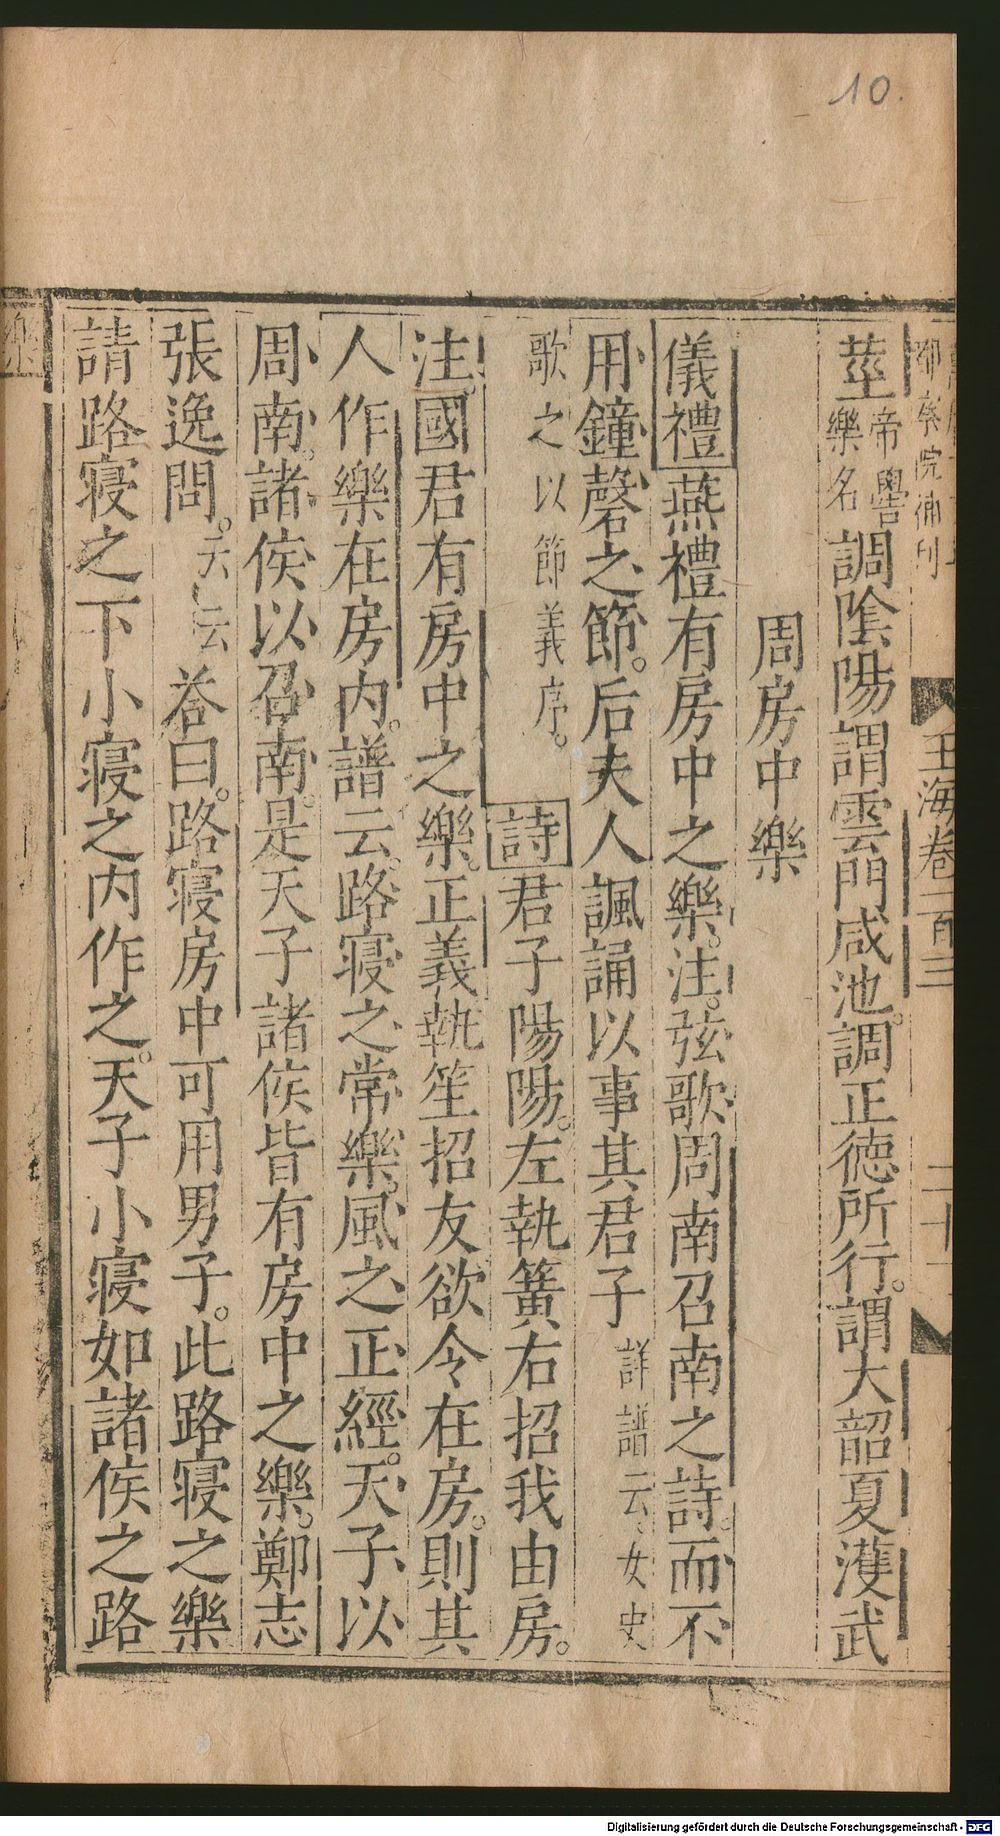 10.
玉海卷一百三
二十一
莖帝嚳樂名調隂陽謂雲門咸池。調正德所行。謂大韶夏濩武
周房中樂
儀禮燕禮有房中之樂。注。弦歌周南召南之詩。而不
用鐘磬之節。后夫人諷誦以事其君子詳譜云、女史
歌之以節義序。詩君子陽陽。左執簧右招我由房。
注。國君有房中之樂。正義執笙招友欲令在房。則其
人作樂在房內。譜云。路寝之常樂。風之正經。天子以
周南。諸侯以召南。是天子諸侯皆有房中之樂。鄭志
張逸問。天云荅曰。路寝房中可用男子。此路寝之樂
請路寝之下小寝之內作之。天子小寝如諸侯之路
樂
Digitalisierung gefördert durch die Deutsche Forschungsgemeinschaft - DFG